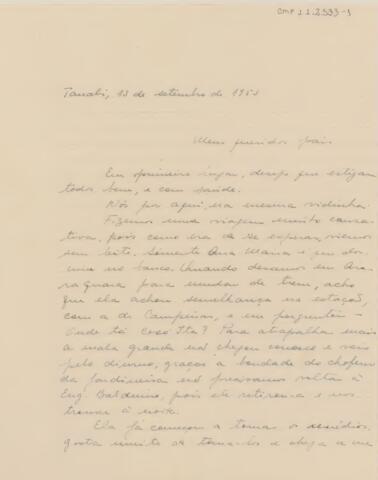 CMP 1.1.2.533-1
Tanabi, 13 de setembro de 1953
Meus queridos pais
Em primeiro lugar, desejo que estejam
todos bem, e com saúde.
Nós por aqui, na mesma vidinha.
Fizemos uma viagem muito cansa-
tiva, pois como era de se esperar, viemos
sem leito. Somente Ana Maria é que dor-
miu no banco. Quando descemos em Ara-
raquara para mudar de trem, acho
que ela achou semelhança na estação,
com a de Campinas, e em perguntou-
Onde tá Cosó Ita? Para atrapalhar mais
a mala grande não chegou conosco e veio
pelo diurno, graças à bondade do chofer
da jardineira não precisamos voltar à
Eng. Balduino, pois ele retirou-a e nos
trouxe à noite.
Ela já começou a tomar os remédios,
gosta muito de tomá-los e chega a me